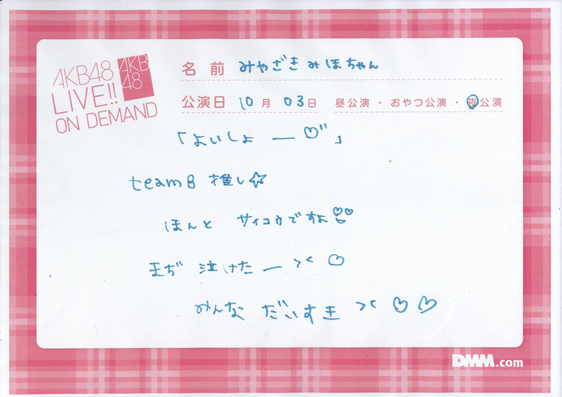 AKB48
LIVE!!
ON DEMAND
AKB
48
名前 みやざきみほちゃん
公演日 10月 03日 昼公演・おやつ公演・夜公演
「よいしょー♡」
teamB 推し☆
ほんと サイコウですよ
まぢ 泣けたー >< ♡
みんな だいすき >< ♡♡
DMM.com